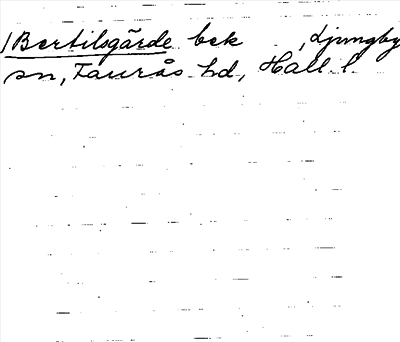 /Bertilsgärde bek , Ljungby
sn, Faurås hd, Hall l.